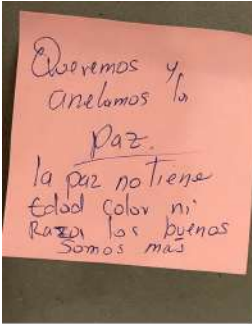 Queremos y
anelamos la
paz.
la paz no tiene
Edad color ni
Raza los buenos
Somos más